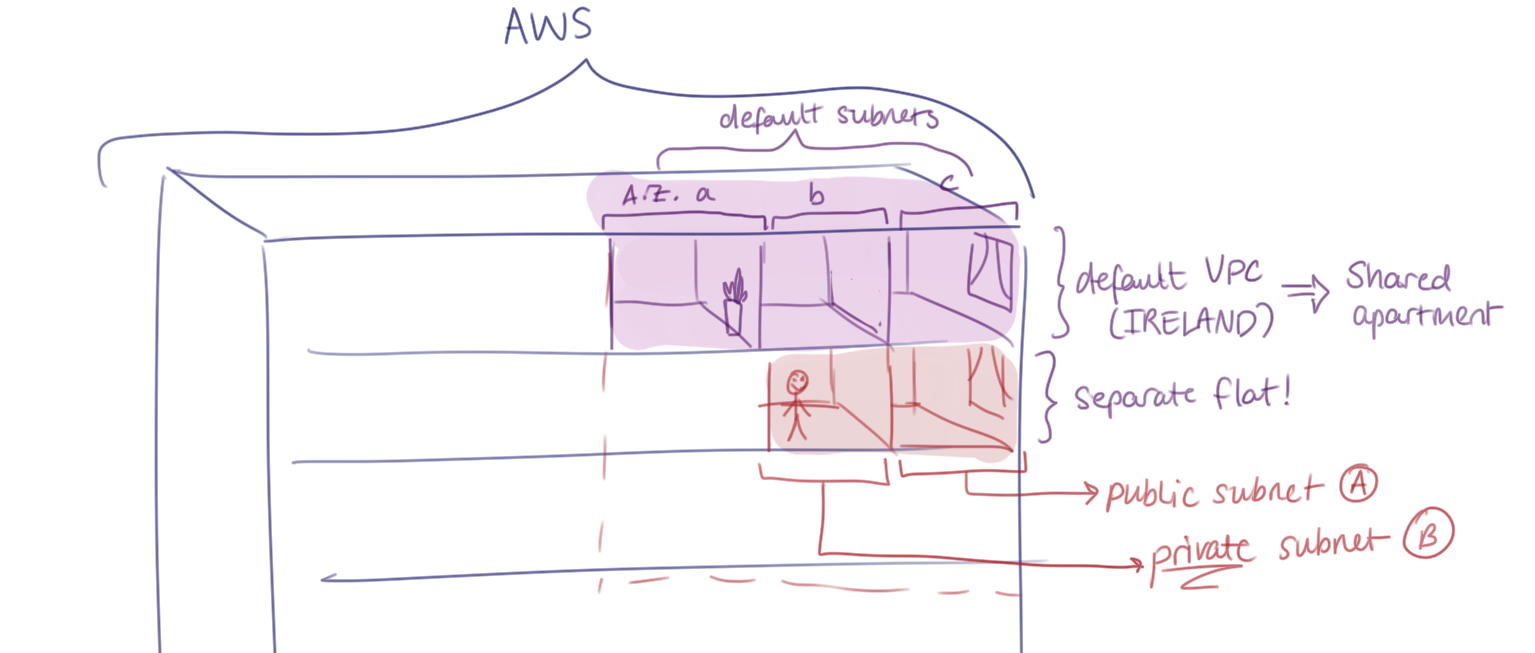 AWS
default subnets
A.Z. a
b
c
default VPC
(IRELAND)
⇒ Shared
apartment
separate flat!
public subnet A
private subnet B